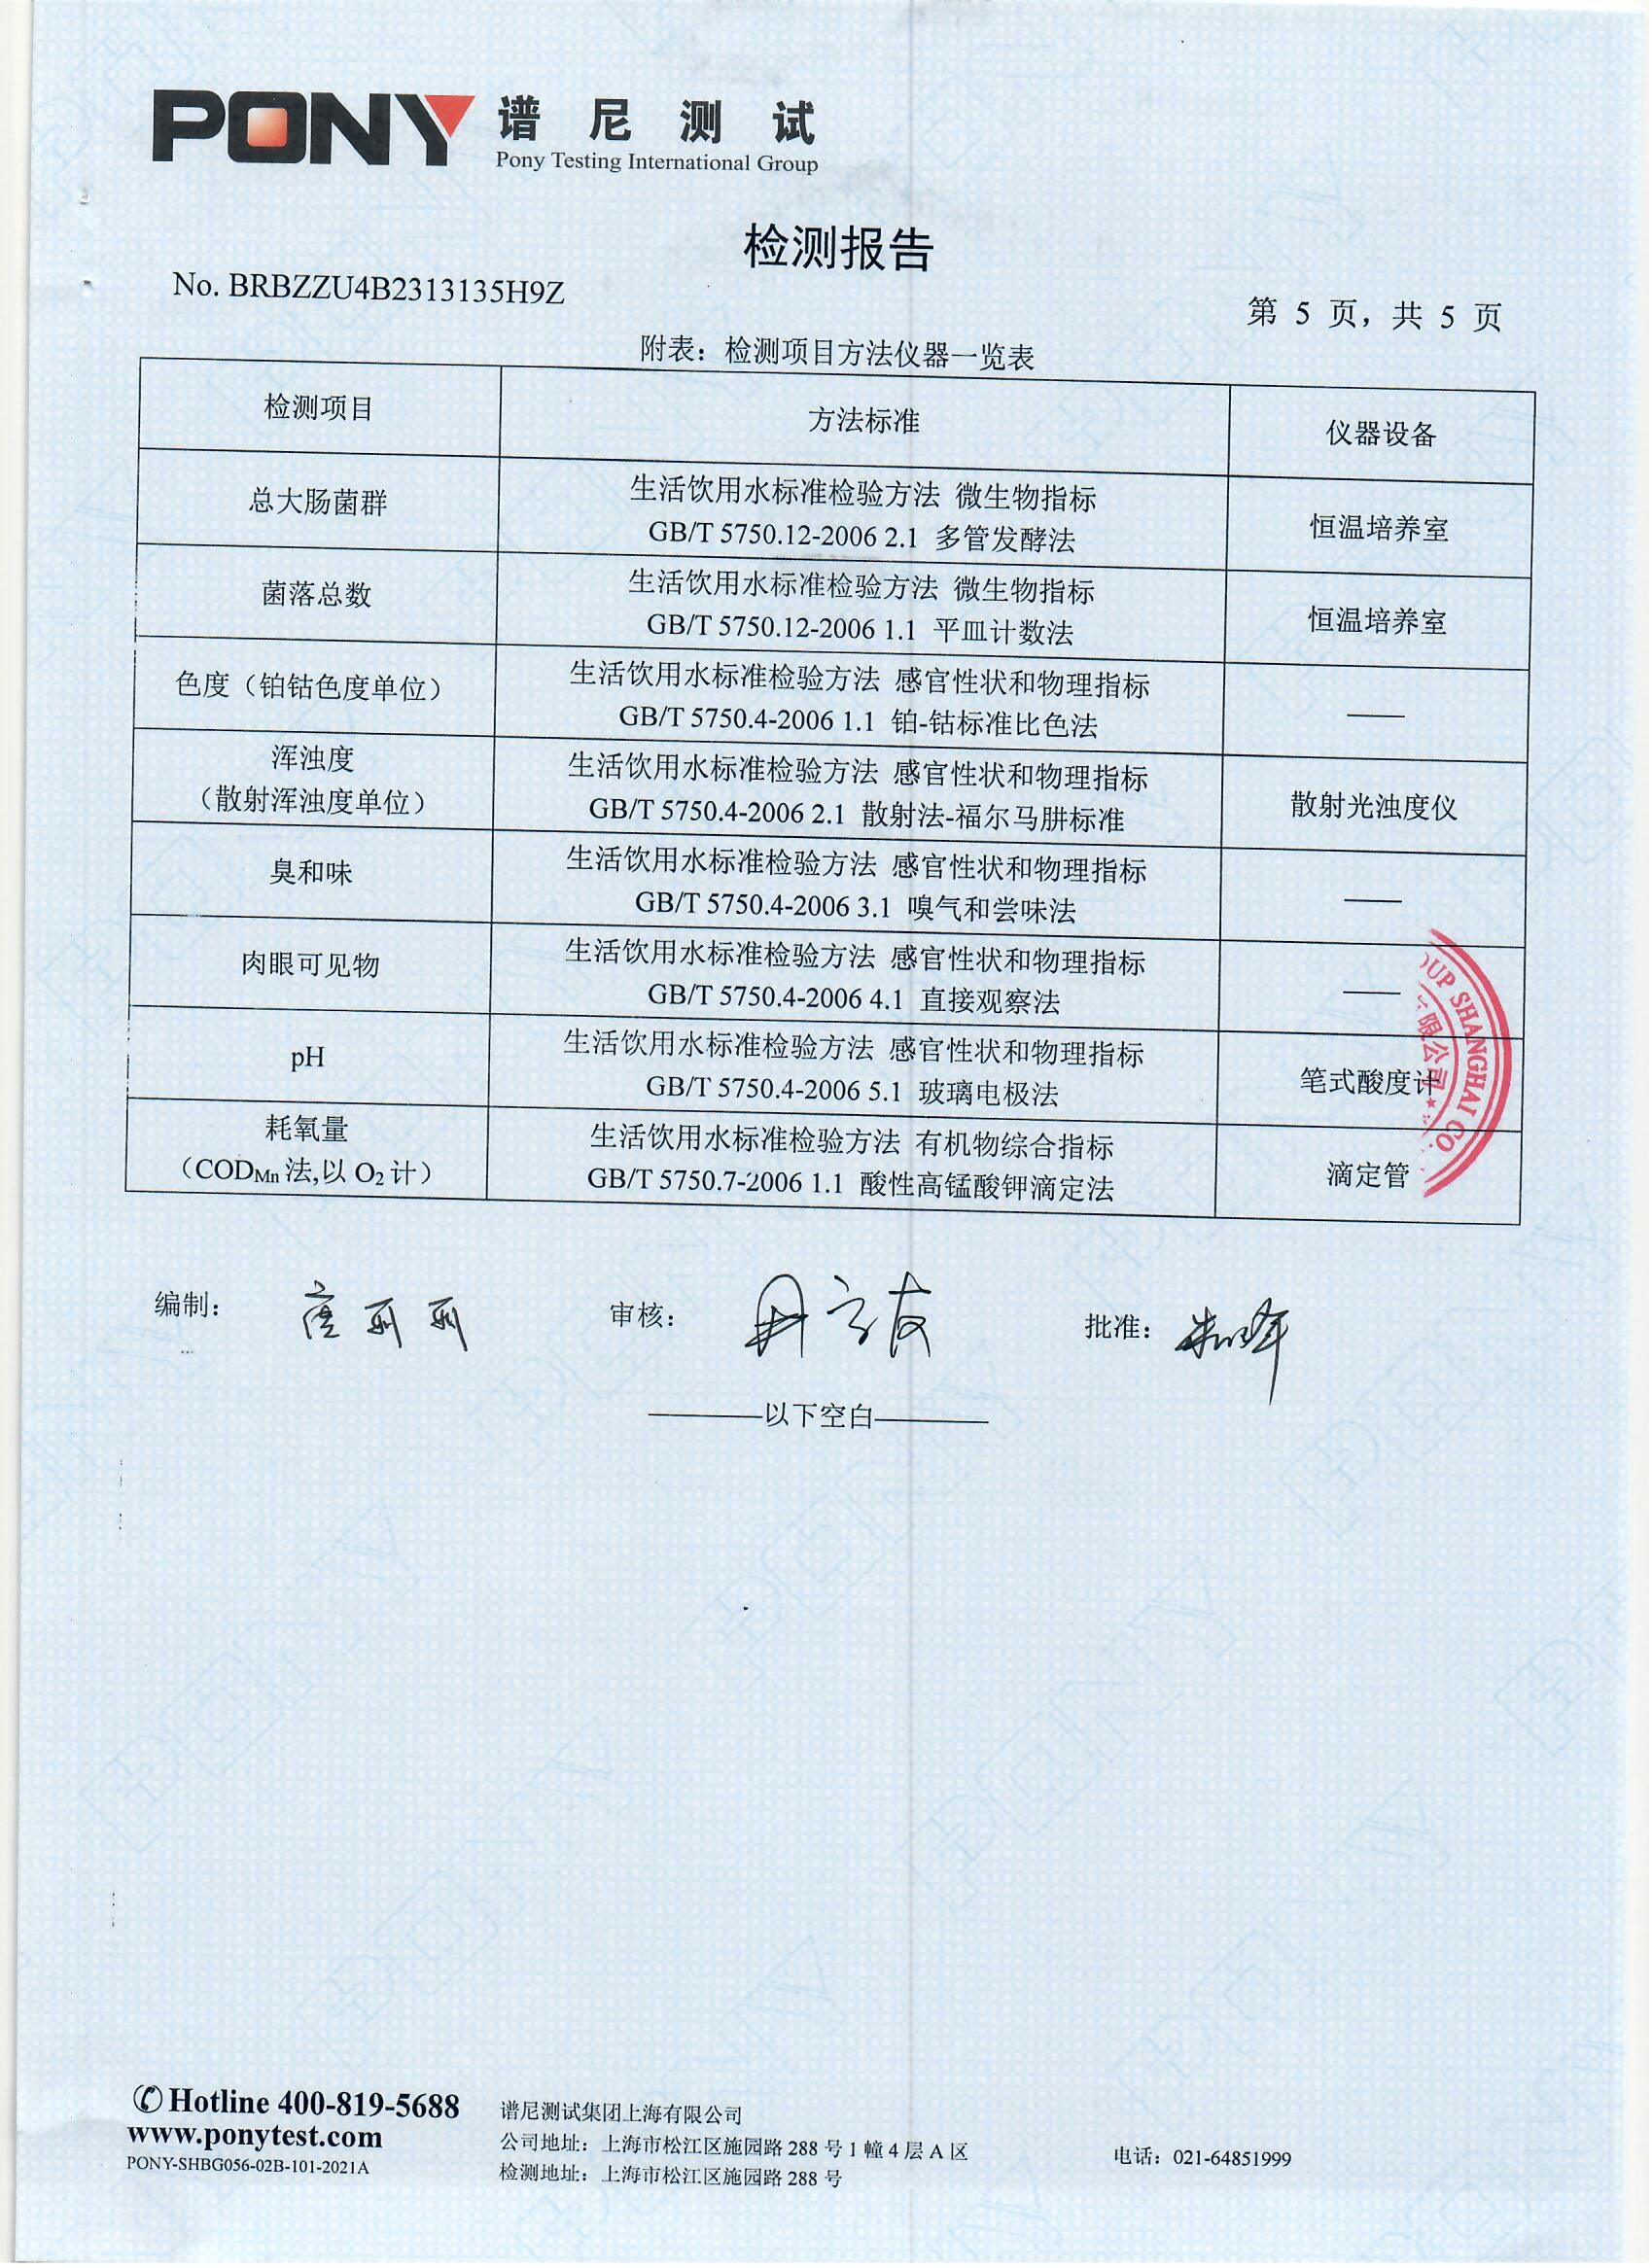 PONY 谱尼测试
Pony Testing International Group
检测报告
No. BRBZZU4B2313135H9Z
第 5 页，共 5 页
附表：检测项目方法仪器一览表
检测项目 方法标准 仪器设备
总大肠菌群 生活饮用水标准检验方法 微生物指标
GB/T 5750.12-2006 2.1 多管发酵法 恒温培养室
菌落总数 生活饮用水标准检验方法 微生物指标
GB/T 5750.12-2006 1.1 平皿计数法 恒温培养室
色度（铂钴色度单位） 生活饮用水标准检验方法 感官性状和物理指标
GB/T 5750.4-2006 1.1 铂-钴标准比色法 ——
浑浊度 生活饮用水标准检验方法 感官性状和物理指标
（散射浑浊度单位） GB/T 5750.4-2006 2.1 散射法-福尔马肼标准 散射光浊度仪
臭和味 生活饮用水标准检验方法 感官性状和物理指标
GB/T 5750.4-2006 3.1 嗅气和尝味法 ——
肉眼可见物 生活饮用水标准检验方法 感官性状和物理指标
GB/T 5750.4-2006 4.1 直接观察法 ——
pH 生活饮用水标准检验方法 感官性状和物理指标
GB/T 5750.4-2006 5.1 玻璃电极法 笔式酸度计
耗氧量 生活饮用水标准检验方法 有机物综合指标
（CODMn法,以 O2计） GB/T 5750.7-2006 1.1 酸性高锰酸钾滴定法 滴定管
SHANGHAI CO.
限公司
编制： 审核： 批准：
————以下空白————
Hotline 400-819-5688
www.ponytest.com
PONY-SHBG056-02B-101-2021A
谱尼测试集团上海有限公司
公司地址：上海市松江区施园路 288 号 1 幢 4 层 A 区
检测地址：上海市松江区施园路 288 号
电话：021-64851999